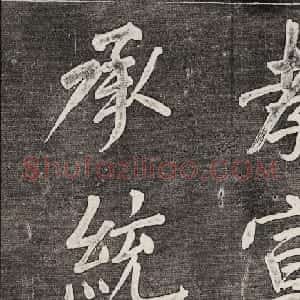 承統
Shufaziliao.COM